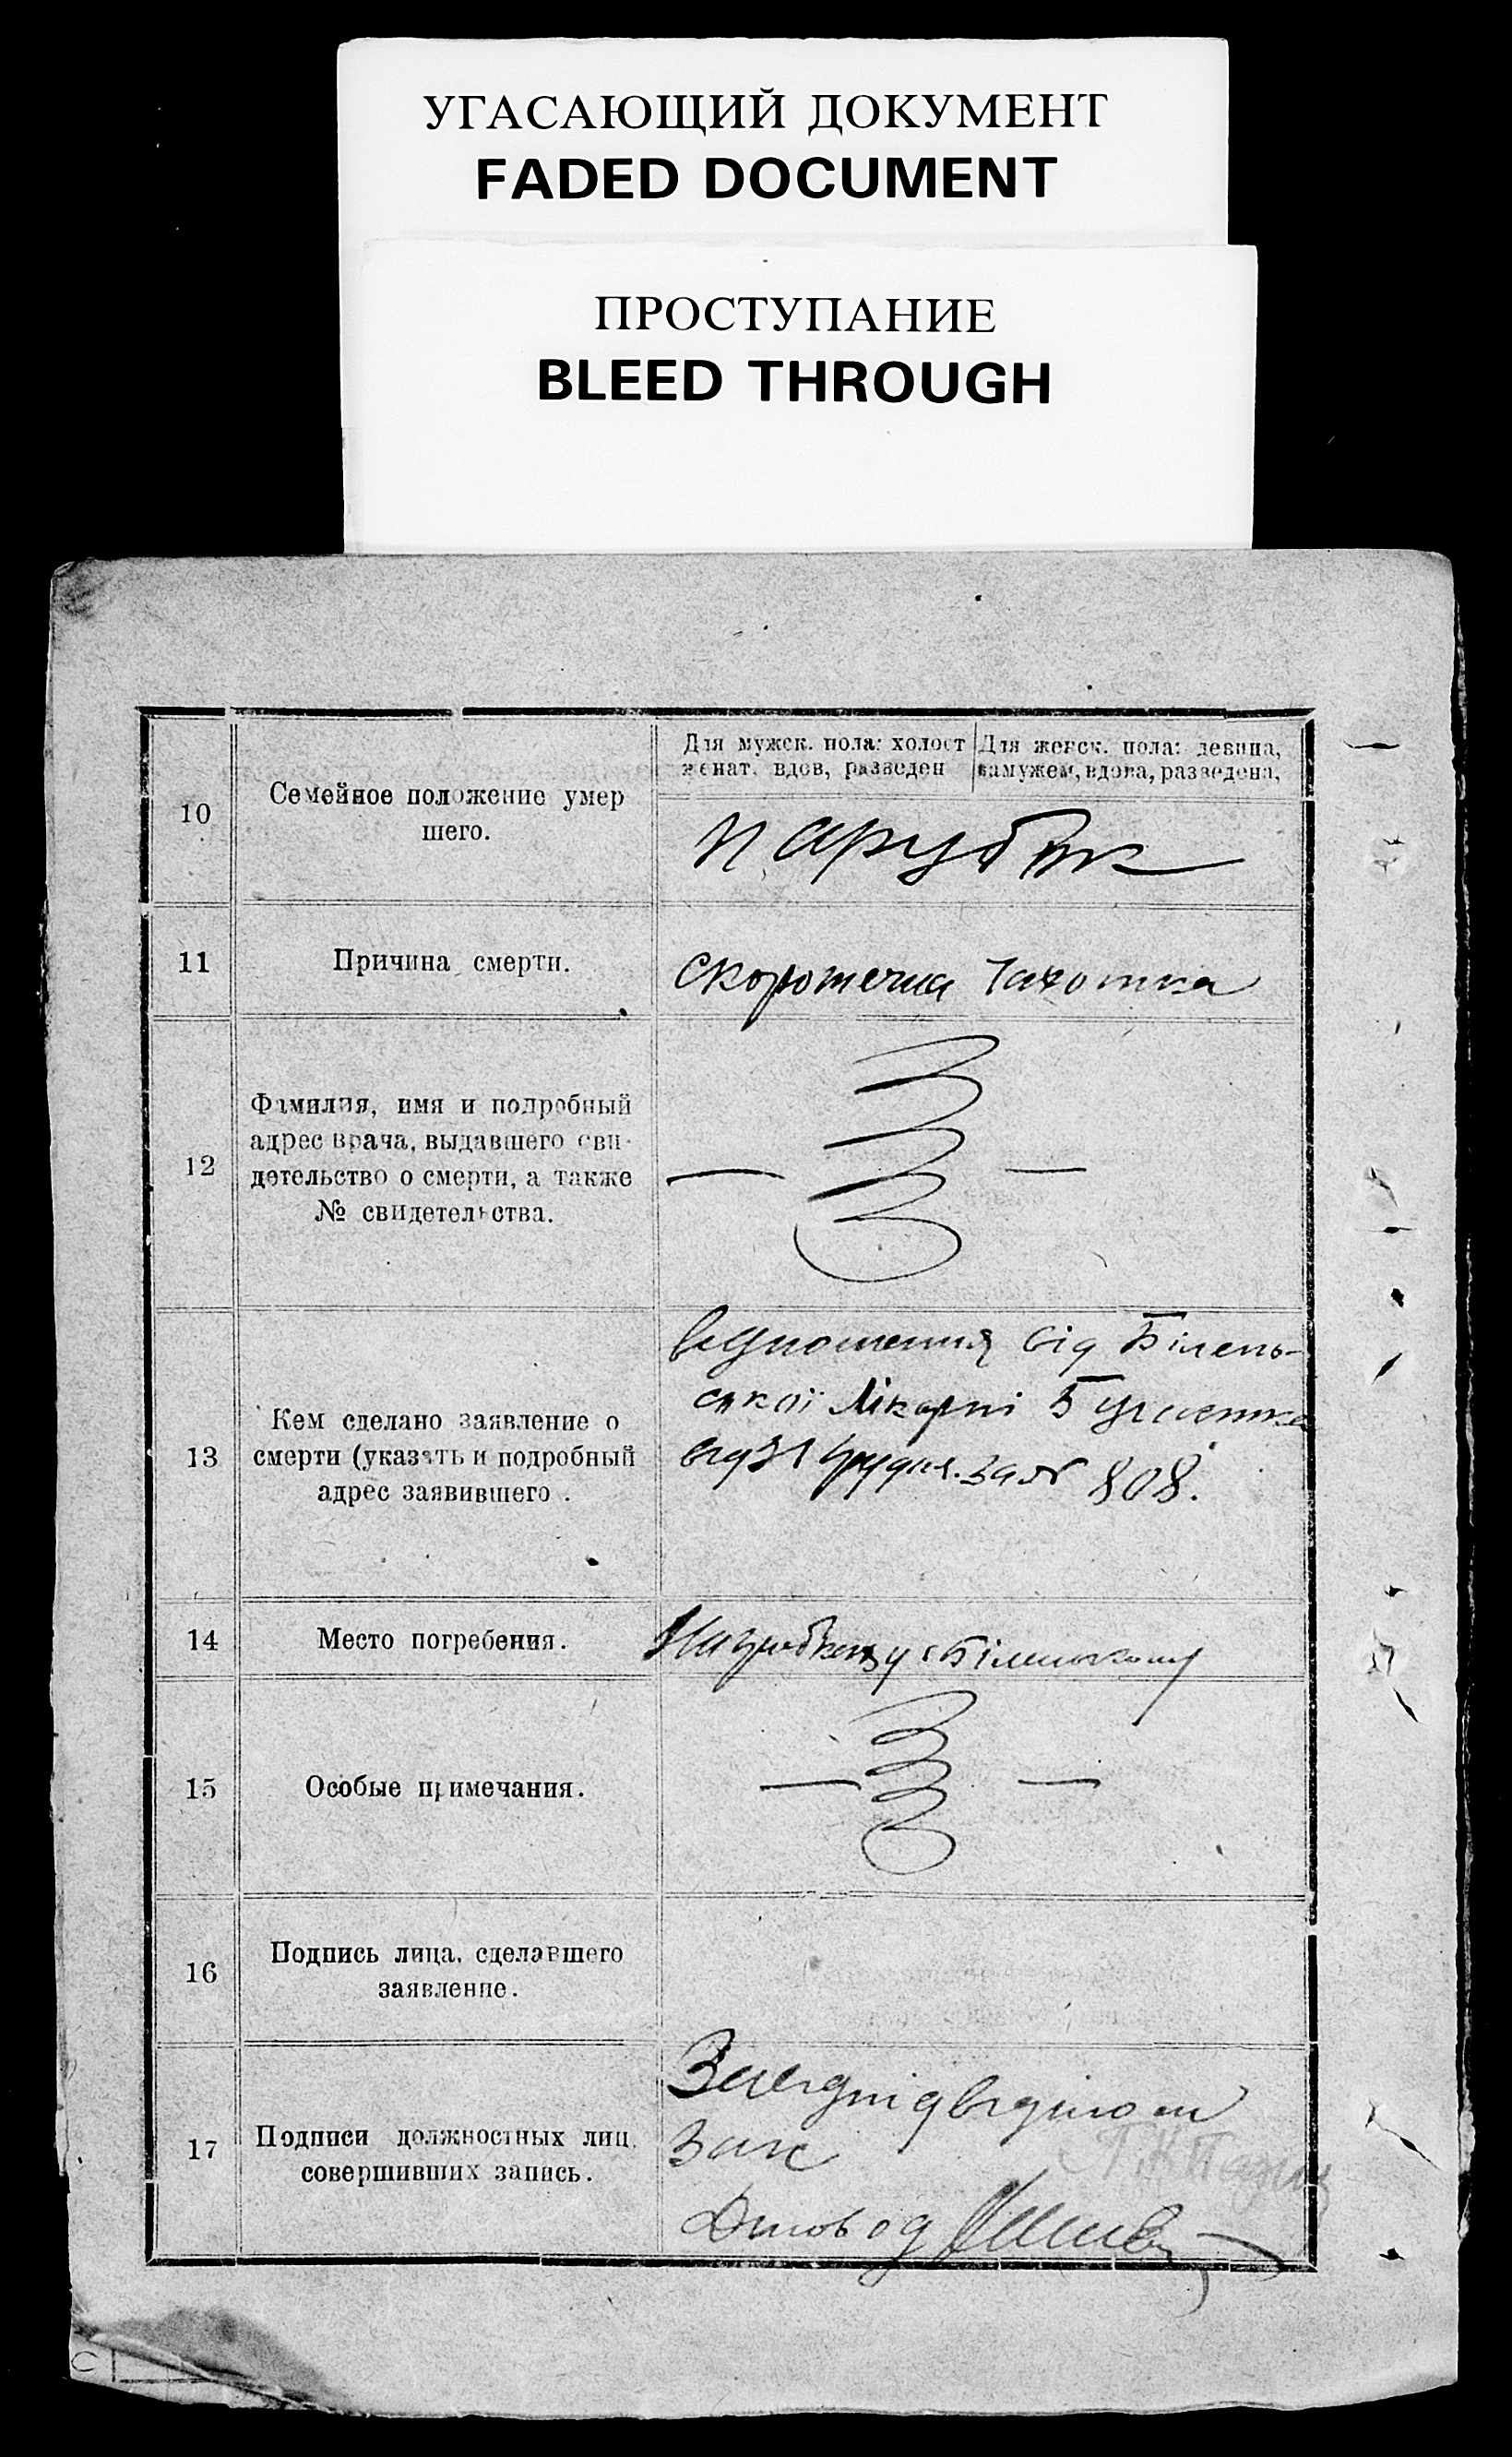 УГАСАЮЩИЙ ДОКУМЕНТ
FADED DOCUMENT
ПРОСТУПАНИЕ
BLEED THROUGH
10
Семейное положение умер
шего.
Для мужск. пола: холост
женат, вдов, разведен
Для женск. пола: девица,
замужем, вдова, разведена,
парубок
11
Причина смерти.
Скоротечна Чахотка
12
Фамилия, имя и подробный
адрес врача, выдавшего сви-
детельство о смерти, а также
№ свидетельства.
13
Кем сделано заявление о
смерти (указать и подробный
адрес заявившего.
відношення від Білень-
ської Лікарні
від 31 грудня за № 808.
14
Место погребения.
Біленькому
15
Особые примечания.
16
Подпись лица, сделавшего
заявление.
17
Подписи должностных лиц,
совершивших запись.
Завідпідвідділом
Загс
Діловод